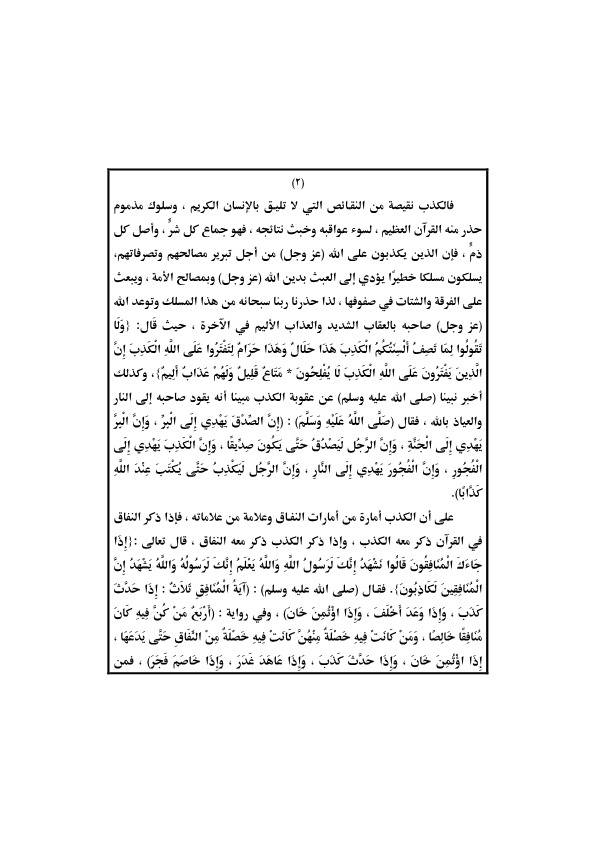 (٢)
فالكذب نقيصة من النقائص التي لا تليق بالإنسان الكريم ، وسلوك مذموم
حذر منه القرآن العظيم ، لسوء عواقبه وخبث نتائجه ، فهو جماع كل شرٍّ ، وأصل كل
ذمٍّ ، فإن الذين يكذبون على الله (عز وجل) من أجل تبرير مصالحهم وتصرفاتهم،
يسلكون مسلكا خطيرًا يؤدي إلى العبث بدين الله (عز وجل) وبمصالح الأمة ، ويبعث
على الفرقة والشتات في صفوفها ، لذا حذرنا ربنا سبحانه من هذا المسلك وتوعد الله
(عز وجل) صاحبه بالعقاب الشديد والعذاب الأليم في الآخرة ، حيث قَال: {وَلَا
تَقُولُوا لِمَا تَصِفُ أَلْسِنَتُكُمُ الْكَذِبَ هَذَا حَلَالٌ وَهَذَا حَرَامٌ لِتَفْتَرُوا عَلَى اللَّهِ الْكَذِبَ إِنَّ
الَّذِينَ يَفْتَرُونَ عَلَى اللَّهِ الْكَذِبَ لَا يُفْلِحُونَ * مَتَاعٌ قَلِيلٌ وَلَهُمْ عَذَابٌ أَلِيمٌ}، وكذلك
أخبر نبينا (صلى الله عليه وسلم) عن عقوبة الكذب مبينا أنه يقود صاحبه إلى النار
والعياذ بالله ، فقال (صَلَّى اللَّهُ عَلَيْهِ وَسَلَّمَ) : (إِنَّ الصِّدْقَ يَهْدِي إِلَى الْبِرِّ ، وَإِنَّ الْبِرَّ
يَهْدِي إِلَى الْجَنَّةِ ، وَإِنَّ الرَّجُلَ لَيَصْدُقُ حَتَّى يَكُونَ صِدِّيقًا ، وَإِنَّ الْكَذِبَ يَهْدِي إِلَى
الْفُجُورِ ، وَإِنَّ الْفُجُورَ يَهْدِي إِلَى النَّارِ ، وَإِنَّ الرَّجُلَ لَيَكْذِبُ حَتَّى يُكْتَبَ عِنْدَ اللَّهِ
كَذَّابًا).
على أن الكذب أمارة من أمارات النفاق وعلامة من علاماته ، فإذا ذكر النفاق
في القرآن ذكر معه الكذب ، وإذا ذكر الكذب ذكر معه النفاق ، قال تعالى :{إِذَا
جَاءَكَ الْمُنَافِقُونَ قَالُوا نَشْهَدُ إِنَّكَ لَرَسُولُ اللَّهِ وَاللَّهُ يَعْلَمُ إِنَّكَ لَرَسُولُهُ وَاللَّهُ يَشْهَدُ إِنَّ
الْمُنَافِقِينَ لَكَاذِبُونَ}. فقال (صلى الله عليه وسلم) : (آيَةُ الْمُنَافِقِ ثَلَاثٌ : إِذَا حَدَّثَ
كَذَبَ ، وَإِذَا وَعَدَ أَخْلَفَ ، وَإِذَا اؤْتُمِنَ خَانَ) ، وفي رواية : (أَرْبَعٌ مَنْ كُنَّ فِيهِ كَانَ
مُنَافِقًا خَالِصًا ، وَمَنْ كَانَتْ فِيهِ خَصْلَةٌ مِنْهُنَّ كَانَتْ فِيهِ خَصْلَةٌ مِنْ النِّفَاقِ حَتَّى يَدَعَهَا ،
إِذَا اؤْتُمِنَ خَانَ ، وَإِذَا حَدَّثَ كَذَبَ ، وَإِذَا عَاهَدَ غَدَرَ ، وَإِذَا خَاصَمَ فَجَرَ) ، فمن